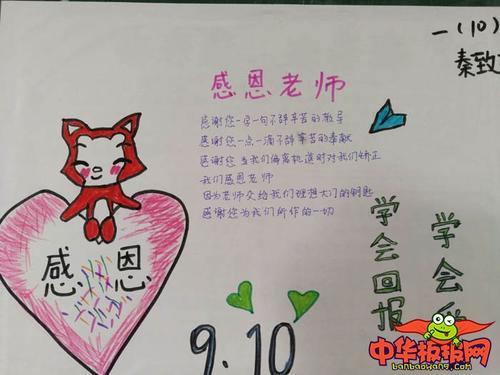 一(10)
秦致
感恩老师
感谢您一字一句不辞辛苦的教导
感谢您一点一滴不辞辛苦的奉献
感谢您当我们偏离轨道时对我们矫正
我们感恩老师
因为老师交给我们理想大门的钥匙
感谢您为我们所作的一切
感 恩
学会回报
学会
9.10
中华板报网
banbaowang.com